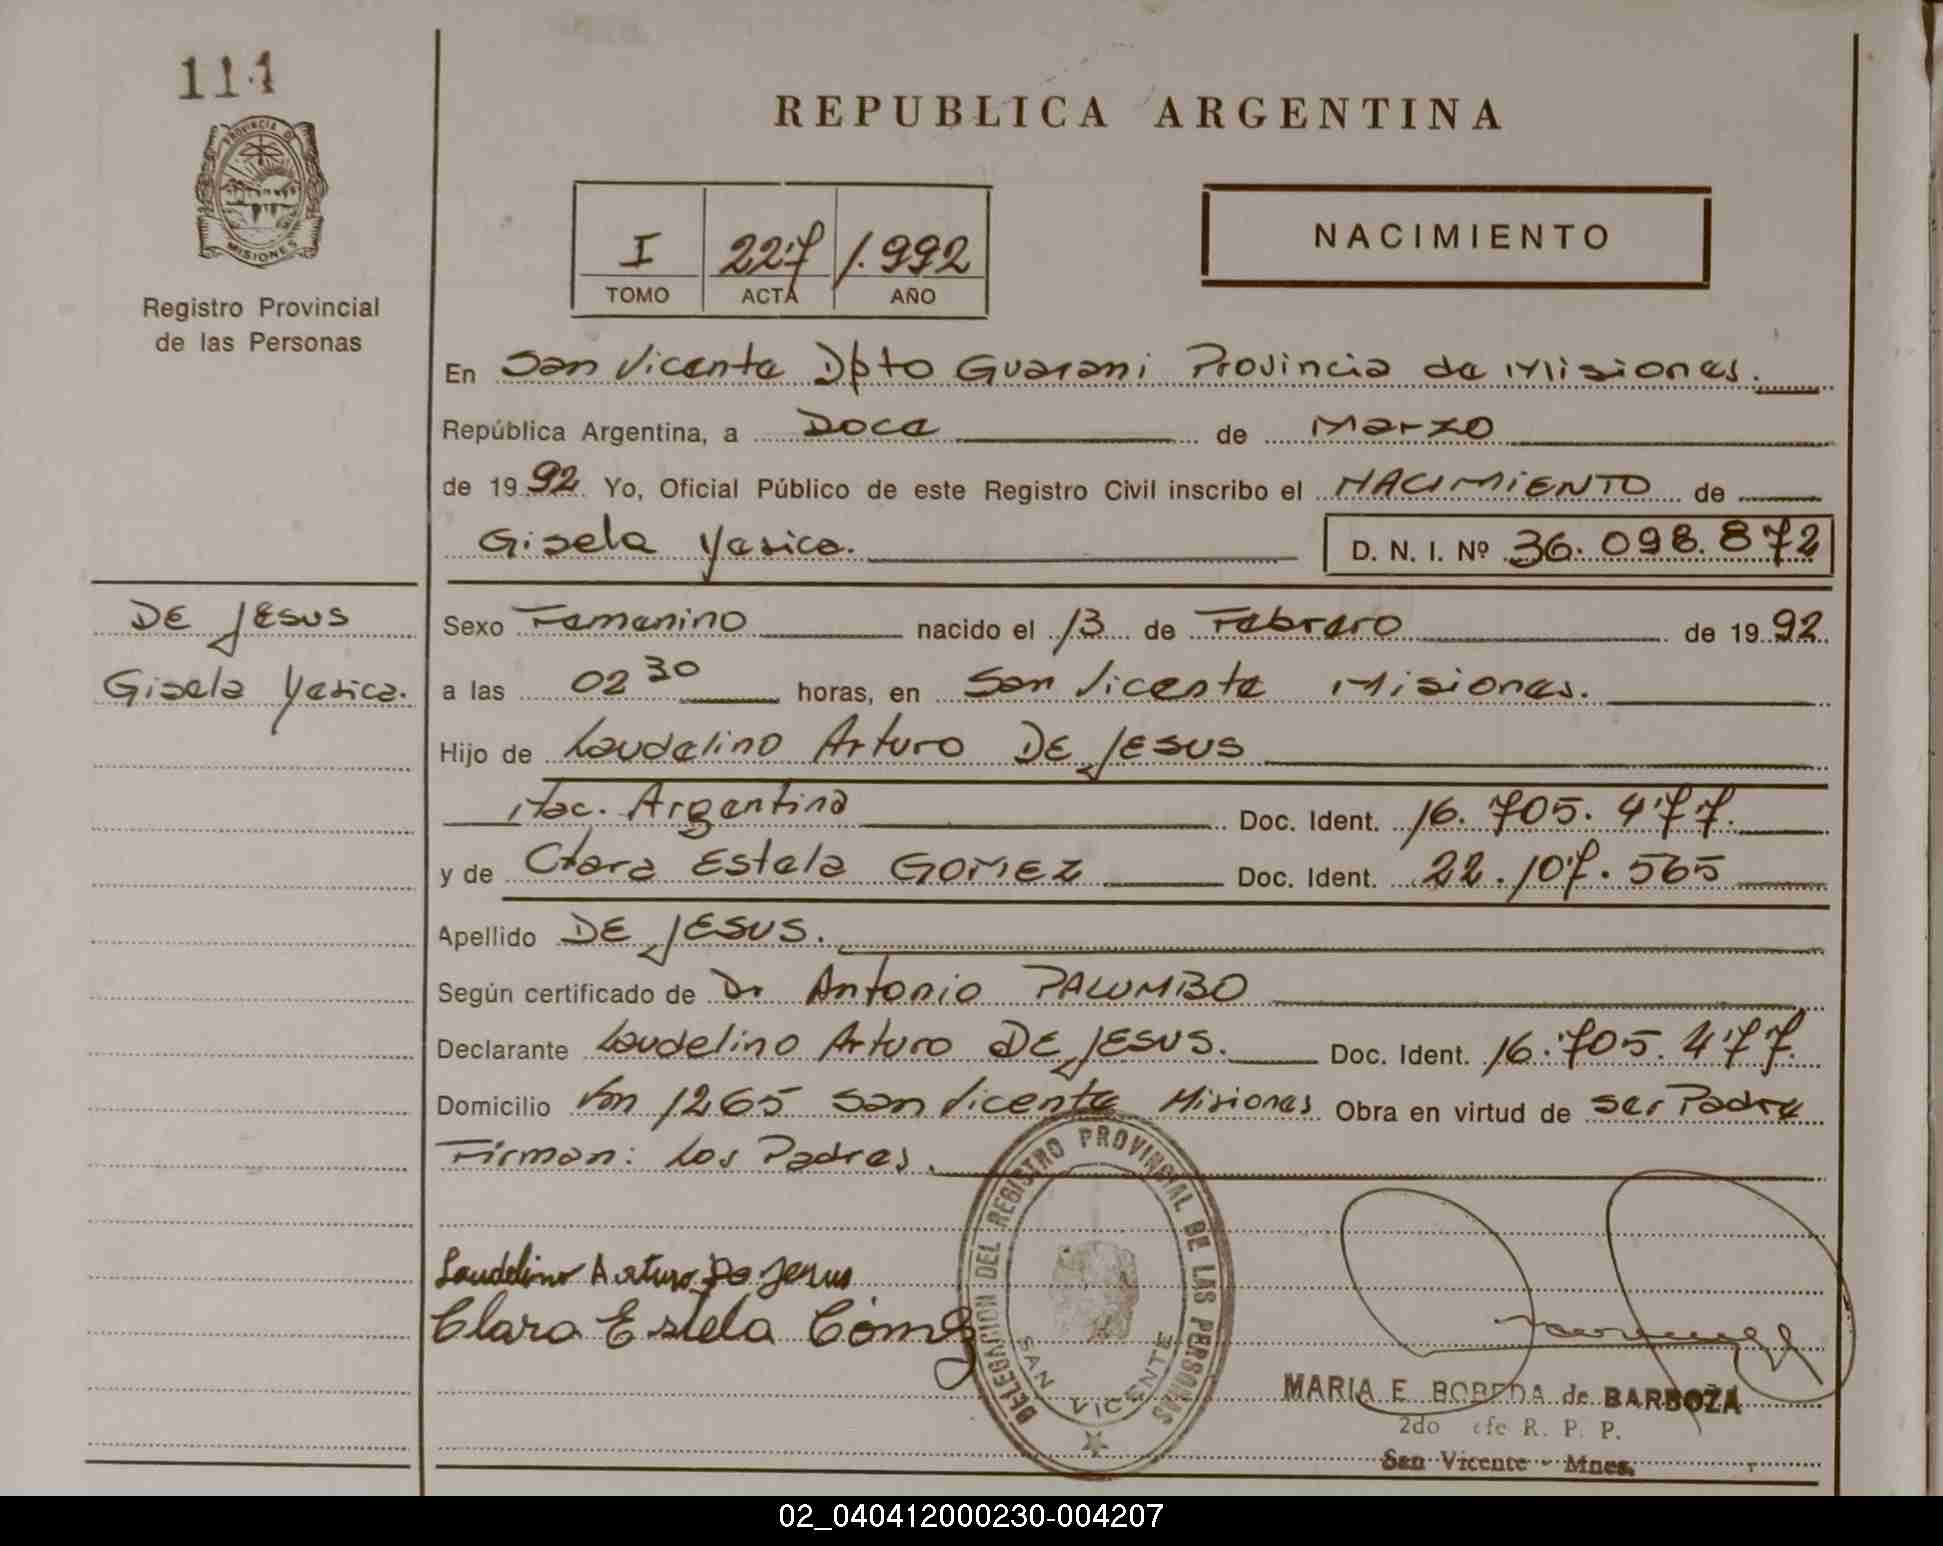 111
PROVINCIA DE
MISIONES
Registro Provincial
de las Personas
REPUBLICA ARGENTINA
I 227 1.992
TOMO ACTA AÑO
NACIMIENTO
En San Vicente Dpto Guarani Provincia de Misiones.
República Argentina, a Doce de Marzo
de 1992 Yo, Oficial Público de este Registro Civil inscribo el NACIMIENTO de
Gisela Yesica. D. N. I. Nº 36.098.872
DE JESUS
Gisela Yesica.
Sexo Femenino nacido el 13 de Febrero de 1992
a las 02 30 horas, en San Vicente Misiones.
Hijo de Laudelino Arturo DE JESUS
Nac. Argentina Doc. Ident. 16.705.477.
y de Clara Estela GOMEZ Doc. Ident. 22.107.565
Apellido DE JESUS.
Según certificado de Dr Antonio PALUMBO
Declarante Laudelino Arturo DE JESUS. Doc. Ident. 16.705.477.
Domicilio Km 1265 San Vicente Misiones Obra en virtud de ser Padre
Firman: Los Padres.
Laudelino Arturo De Jesus
Clara Estela Gómez
DELEGACION DEL REGISTRO PROVINCIAL DE LAS PERSONAS
SAN VICENTE
MARIA E. BOBEDA de BARBOZA
2do efe R. P. P.
San Vicente - Mnes.
02_040412000230-004207